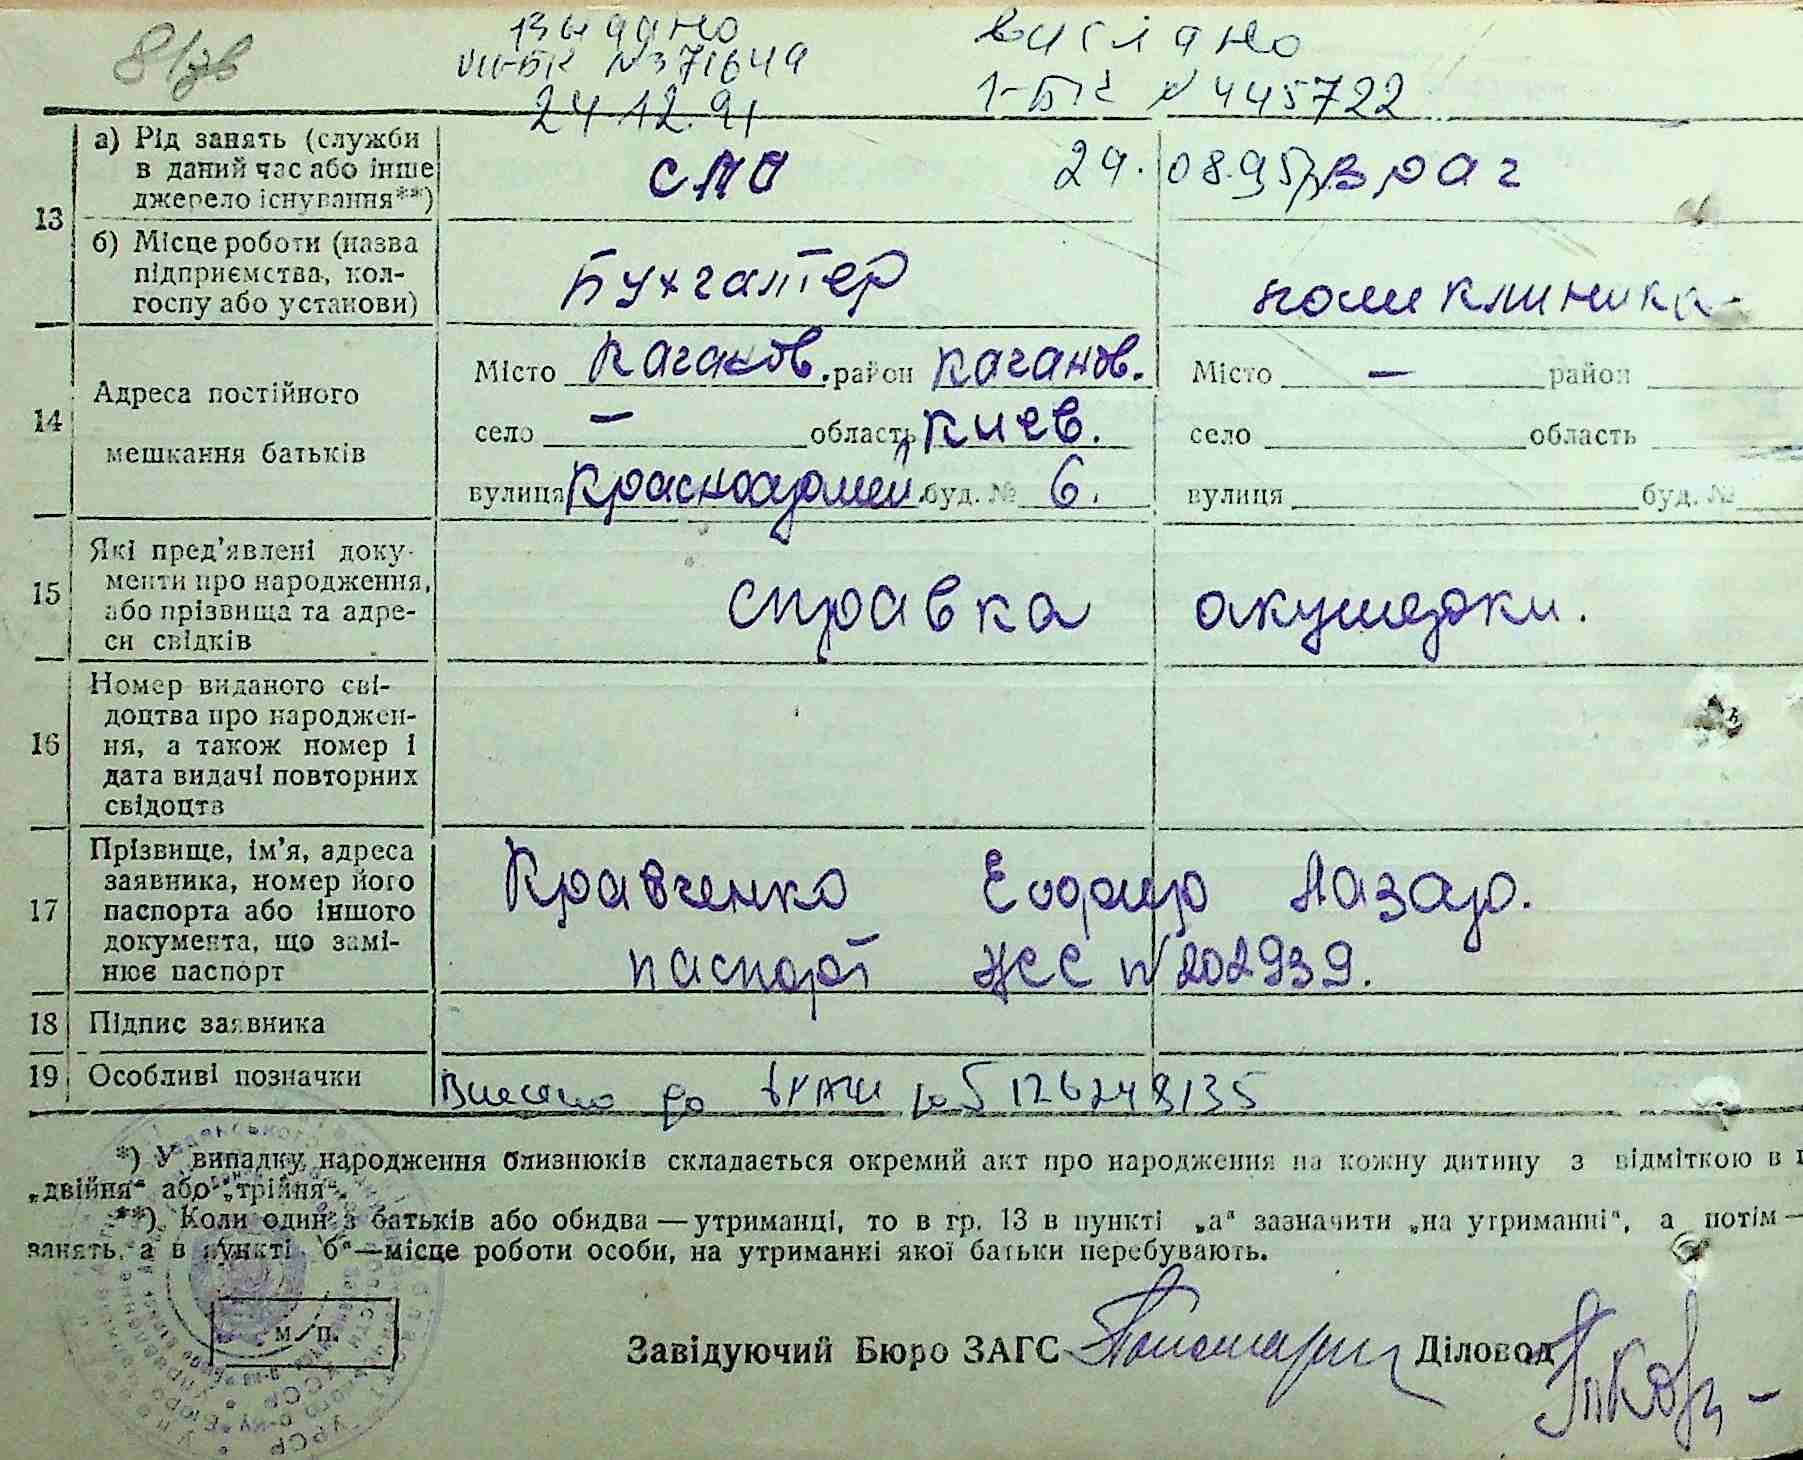 8/зв
Выдано
VIII-БК №371649
24.12.91
вислано
1-БК №445722
29.08.95р.
13
а) Рід занять (служби
в даний час або інше
джерело існування**)
врач
б) Місце роботи (назва
підприємства, кол-
госпу або установи)
Бухгалтер
поликлиника
14
Адреса постійного
мешкання батьків
Місто Каганов. район Каганов.
село — область Киев.
вулиця Красноармей. буд. № 6.
Місто — район
село область
вулиця буд. №
15
Які пред’явлені доку-
менти про народження,
або прізвища та адре-
си свідків
справка акушерки.
16
Номер виданого сві-
доцтва про народжен-
ня, а також номер і
дата видачі повторних
свідоцтв
17
Прізвище, ім’я, адреса
заявника, номер його
паспорта або іншого
документа, що замі-
нює паспорт
Кравченко Лазар.
паспорт ЖСС №202939.
18 Підпис заявника
19 Особливі позначки
Внесено до 126248135
*) У випадку народження близнюків складається окремий акт про народження на кожну дитину з відміткою в
„двійня“ або „трійня“.
**) Коли один з батьків або обидва — утриманці, то в гр. 13 в пункті „а“ зазначити „на утриманні“, а потім —
занять, а в пункті „б“ — місце роботи особи, на утриманні якої батьки перебувають.
м. п.
Завідуючий Бюро ЗАГС Діловод